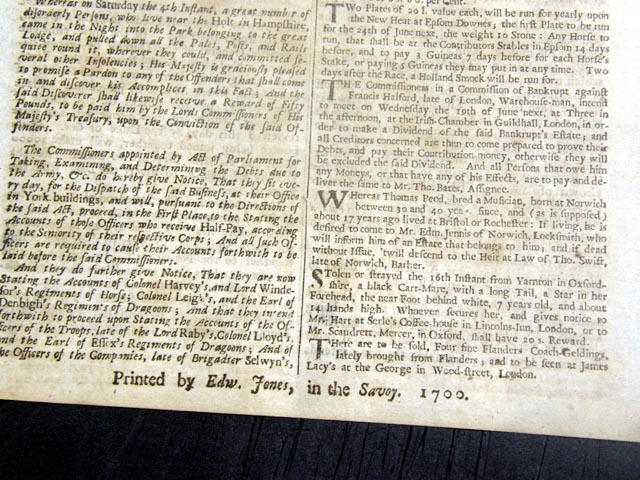 Whereas on Saturday the 4th Instant, a great number of
disorderly Persons, who live near the Holt in Hampshire,
came in the Night into the Park belonging to the great
Lodge, and pulled down all the Pales, Posts, and Rails
quite round it, wherever they could, and committed se-
veral other Insolencies; His Majesty is graciously pleased
to promise a Pardon to any of the Offenders that shall come
in and discover his Accomplices in this Fact: And the
said Discoverer shall likewise receive a Reward of Fifty
Pounds, to be paid him by the Lords Commissioners of His
Majesty's Treasury, upon the Conviction of the said Of-
fenders.
The Commissioners appointed by Act of Parliament for
Taking, Examining, and Determining the Debts due to
the Army, &c. do hereby give Notice, That they sit eve-
ry day, for the Dispatch of the said Business, at their Office
in York-buildings, and will, pursuant to the Directions of
the said Act, proceed, in the First Place, to the Stating the
Accounts of those Officers who Receive Half-Pay, according
to the Seniority of their respective Corps; And all such Of-
ficers are required to cause their Accounts forthwith to be
laid before the said Commissioners.
And they do further give Notice, That they are now
Stating the Accounts of Colonel Harvey's, and Lord Winde-
sor's Regiments of Horse; Colonel Leigh's, and the Earl of
Denbigh's Regiments of Dragoons; And that they intend
forthwith to proceed upon Stating the Accounts of the Of-
ficers of the Troops, late of the Lord Raby's, Colonel Lloyd's,
and the Earl of Essex's Regiments of Dragoons; And of
the Officers of the Companies, late of Brigadier Selwyn's,
per Cent.
Two Plates of 20 l. value each, will be run for yearly upon
the New Heat at Epsom Downes, the first Plate to be run
for the 24th of June next, the weight 10 Stone: Any Horse to
run, that shall be at the Contributors Stables in Epsom 14 days
before, and to pay 3 Guineas 7 days before for each Horse's
Stake, or paying 5 Guineas they may put in at any time. Two
days after the Race, a Holland Smock will be run for.
THE Commissioners in a Commission of Bankrupt against
Francis Halford, late of London, Warehouse-man, intend
to meet on Wednesday the 19th of June next, at Three in
the afternoon, at the Irish-Chamber in Guildhall, London, in or-
der to make a Dividend of the said Bankrupt's Estate; and
all Creditors concerned are then to come prepared to prove their
Debts, and pay their Contribution-money, otherwise they will
be excluded the said Dividend. And all Persons that owe him
any Moneys, or that have any of his Effects, are to pay and de-
liver the same to Mr. Tho. Bates, Assignee.
WHereas Thomas Peed, bred a Musician, born at Norwich
between 39 and 40 years since, and (as is supposed)
about 17 years ago lived at Bristol or Rochester: If living, he is
desired to come to Mr. Edm. Jennis of Norwich, Locksmith, who
will inform him of an Estate that belongs to him; and if dead
without Issue, 'twill descend to the Heir at Law of Tho. Swift,
late of Norwich, Barber.
STolen or strayed the 16th Instant from Yarnton in Oxford-
shire, a black Cart-Mare, with a long Tail, a Star in her
Forehead, the near Foot behind white, 7 years old, and about
14 hands high. Whoever secures her, and gives notice to
Mr. Hart at Serle's Coffee-house in Lincolns-Inn, London, or to
Mr. Souldrett, Mercer, in Oxford, shall have 20 s. Reward.
THere are to be sold, Four fine Flanders Coach-Geldings,
lately brought from Flanders; and to be seen at James
Lacy's at the George in Wood-street, London.
Printed by Edw. Jones, in the Savoy. 1700.